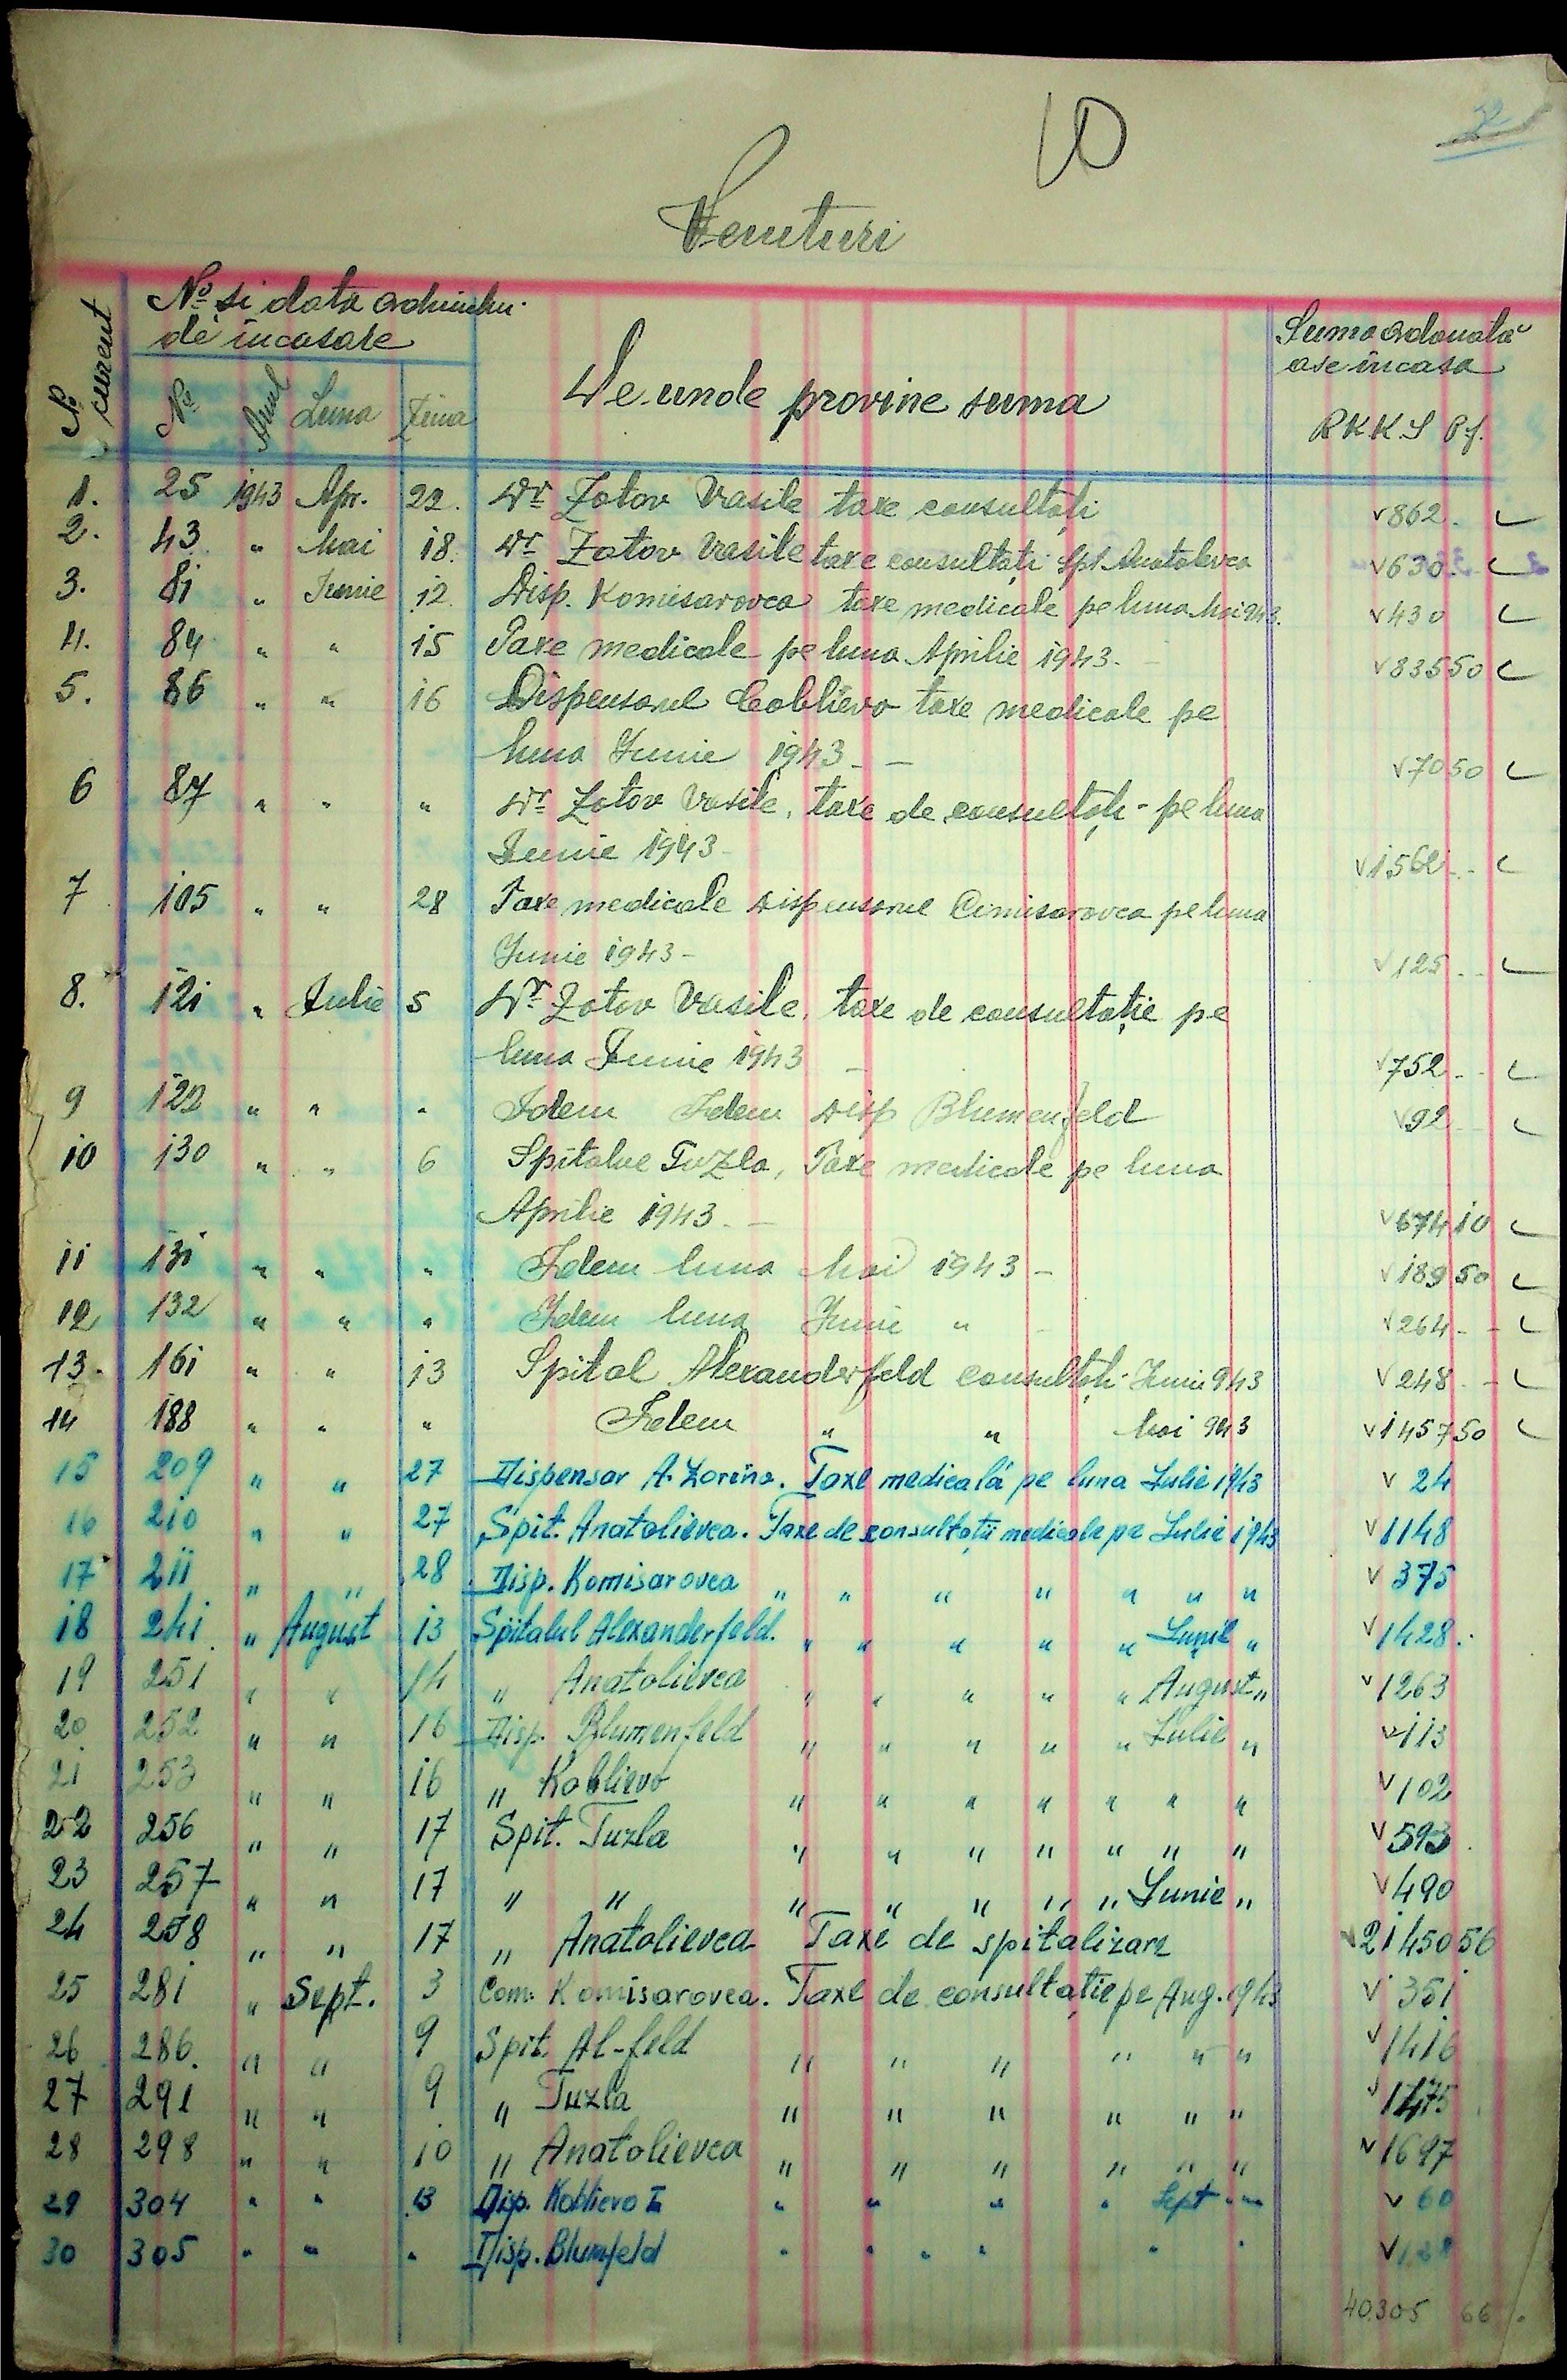 10
Venituri
No curent
No și data ordinului de incasare
No Anul Luna Ziua
De unde provine suma
Suma ordonată a se incasa
RKKS Pf.
1. 25 1943 Apr. 22. Dr Zotov Vasile taxe consultați v 862.
2. 43 " Mai 18. Dr Zotov Vasile taxe consultați Spt. Anatolevca v 630.
3. 81 " Iunie 12. Disp. Komisarovca taxe medicale pe luna Mai 943. v 430
4. 84 " " 15 Taxe medicale pe luna Aprilie 1943. - v 835 50
5. 86 " " 16 Dispensarul Coblievo taxe medicale pe
luna Iunie 1943 - - v 70 50
6 87 " " " Dr Zotov Vasile, taxe de consultați - pe luna
Iunie 1943 - v 1562 - -
7 105 " " 28 Taxe medicale Dispensarul Comisarovca pe luna
Iunie 1943 - v 125 - -
8. 121 " Iulie 5 Dr Zotov Vasile, taxe de consultație pe
luna Iunie 1943 - v 752 - -
9 122 " " " Idem Idem Disp Blumenfeld v 92 - -
10 130 " " 6 Spitalul Tuzla, Taxe medicale pe luna
Aprilie 1943. - v 674 10
11 131 " " " Idem luna Mai 1943 - v 189 50
12 132 " " " Idem luna Iunie " - v 264 - -
13. 161 " " 13 Spital Alexanderfeld consultați Iunie 943 v 248 - -
14 188 " " " Idem " " Mai 943 v 1457 50
15 209 " " 27 Dispensar A. Zorina. Taxe medicală pe luna Iulie 1943 v 24
16 210 " " 27 Spit. Anatolievca. Taxe de consultații medicale pe Iulie 1943 v 1148
17 211 " " 28 Disp. Komisarovca " " " " " " " v 375
18 241 " August 13 Spitalul Alexanderfeld. " " " " " Iunie " v 1428.
19 251 " " 14 " Anatolievca " " " " " August " v 1263
20 252 " " 16 Disp. Blumenfeld " " " " " Iulie " v 113
21 253 " " 16 " Koblievo " " " " " " " v 102
22 256 " " 17 Spit. Tuzla " " " " " " " v 593
23 257 " " 17 " " " " " " " Iunie " v 490
24 258 " " 17 " Anatolievca Taxe de spitalizare v 21450 56
25 281 " Sept. 3 Com. Komisarovca. Taxe de consultație pe Aug. 1943 v 351
26 286. " " 9 Spit. Al-feld " " " " " " v 1416
27 291 " " 9 " Tuzla " " " " " " v 1475
28 298 " " 10 " Anatolievca " " " " " " v 1697
29 304 " " 13 Disp. Koblievo I " " " " Sept " " v 60
30 305 " " " Disp. Blumfeld " " " " " " v
40.305 66